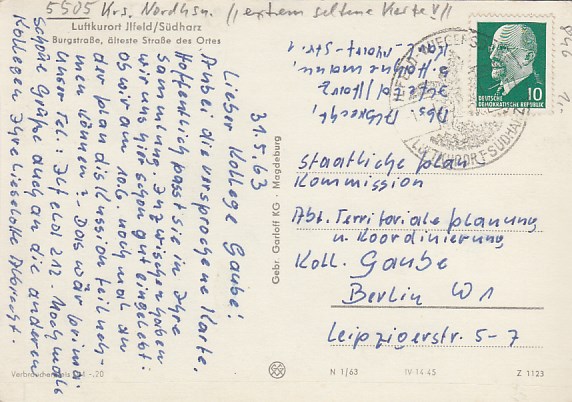 5505 Krs. Nordhsn. //extrem seltene Karte!/
Luftkurort Ilfeld/Südharz
Burgstraße, älteste Straße des Ortes
31.5.63
Lieber Kollege Gaube!
Anbei die versprochene Karte.
Hoffentlich passt sie in Ihre
Sammlung. Inzwischen haben
wir uns hier schon gut eingelebt.
Ob wir am 10.6. noch mal an
der Plandiskussion teilneh-
men können? - Das wär prima.
Unser Tel.: Ilfeld 212. - Nochmals
schöne Grüße auch an die anderen
Kollegen Ihre Lieselotte Albrecht.
Verbraucherpreis DM -,20
Gebr. Garloff KG · Magdeburg
Abs. Albrecht,
Ilfeld/Harz
b. Hahnemann,
Karl-Marx-Str. 1
LUFTKURORT SÜDHARZ
10
DEUTSCHE
DEMOKRATISCHE REPUBLIK
Staatliche Plan
Kommission
Abt. Territoriale Planung
u. Koordinierung
Koll. Gaube
Berlin W1
Leipzigerstr. 5-7
N 1/63
IV-14-45
Z 1123